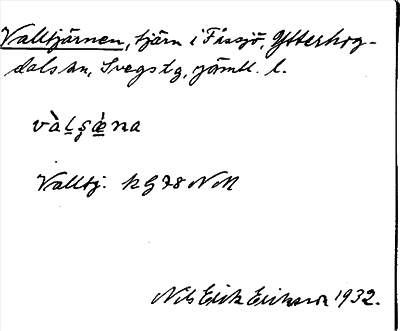 Valltjärnen, tjärn i Fåssjö, Ytterhog-
dals sn, Svegs tg, Jämtl. l.
vàḷṣæ̀na
Valltj. kG 78 NM
Nils Erik Eriksson 1932.